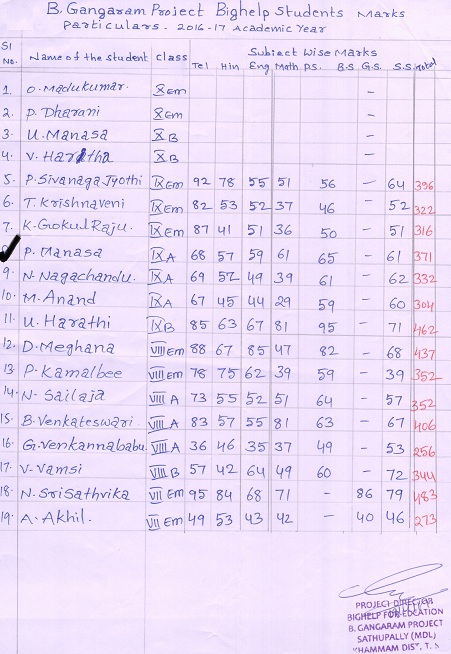 B. Gangaram Project Bighelp Students Marks
Particulars. 2016-17 Academic Year
Sl No. Name of the student Class Subject Wise Marks
Tel Hin Eng Math PS. B.S G.S. S.S Total
1. O. Madukumar. X Em -
2. P. Dharani X Em -
3. U. Manasa X B -
4. V. Haritha X B -
5. P. Sivanaga Jyothi IX Em 92 78 55 51 56 - 64 396
6. T. Krishnaveni IX Em 82 53 52 37 46 - 52 322
7. K. Gokul Raju. IX Em 87 41 51 36 50 - 51 316
8. P. Manasa IX A 68 57 59 61 65 - 61 371
9. N. Nagachandu. IX A 69 52 49 39 61 - 62 332
10. M. Anand IX A 67 45 44 29 59 - 60 304
11. U. Harathi IX B 85 63 67 81 95 - 71 462
12. D. Meghana VIII Em 88 67 85 47 82 - 68 437
13. P. Kamalbee VIII Em 78 75 62 39 59 - 39 352
14. N. Sailaja VIII A 73 55 52 51 64 - 57 352
15. B. Venkateswari. VIII A 83 57 55 81 63 - 67 406
16. G. Venkannababu. VIII A 36 46 35 37 49 - 53 256
17. V. Vamsi VIII B 57 42 64 49 60 - 72 344
18. N. Sri Sathvika VII Em 95 84 68 71 - 86 79 483
19. A. Akhil. VII Em 49 53 43 42 - 40 46 273
PROJECT DIRECTOR
BIGHELP FOR EDCATION
B. GANGARAM PROJECT
SATHUPALLY (MDL)
KHAMMAM DIST, T.S